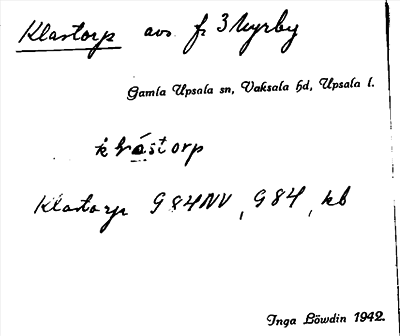 Klastorp avs. fr 3 Myrby
Gamla Upsala sn, Vaksala hd, Upsala l.
klástorp
Klastorp G84NV, G84, kb
Inga Löwdin 1942.